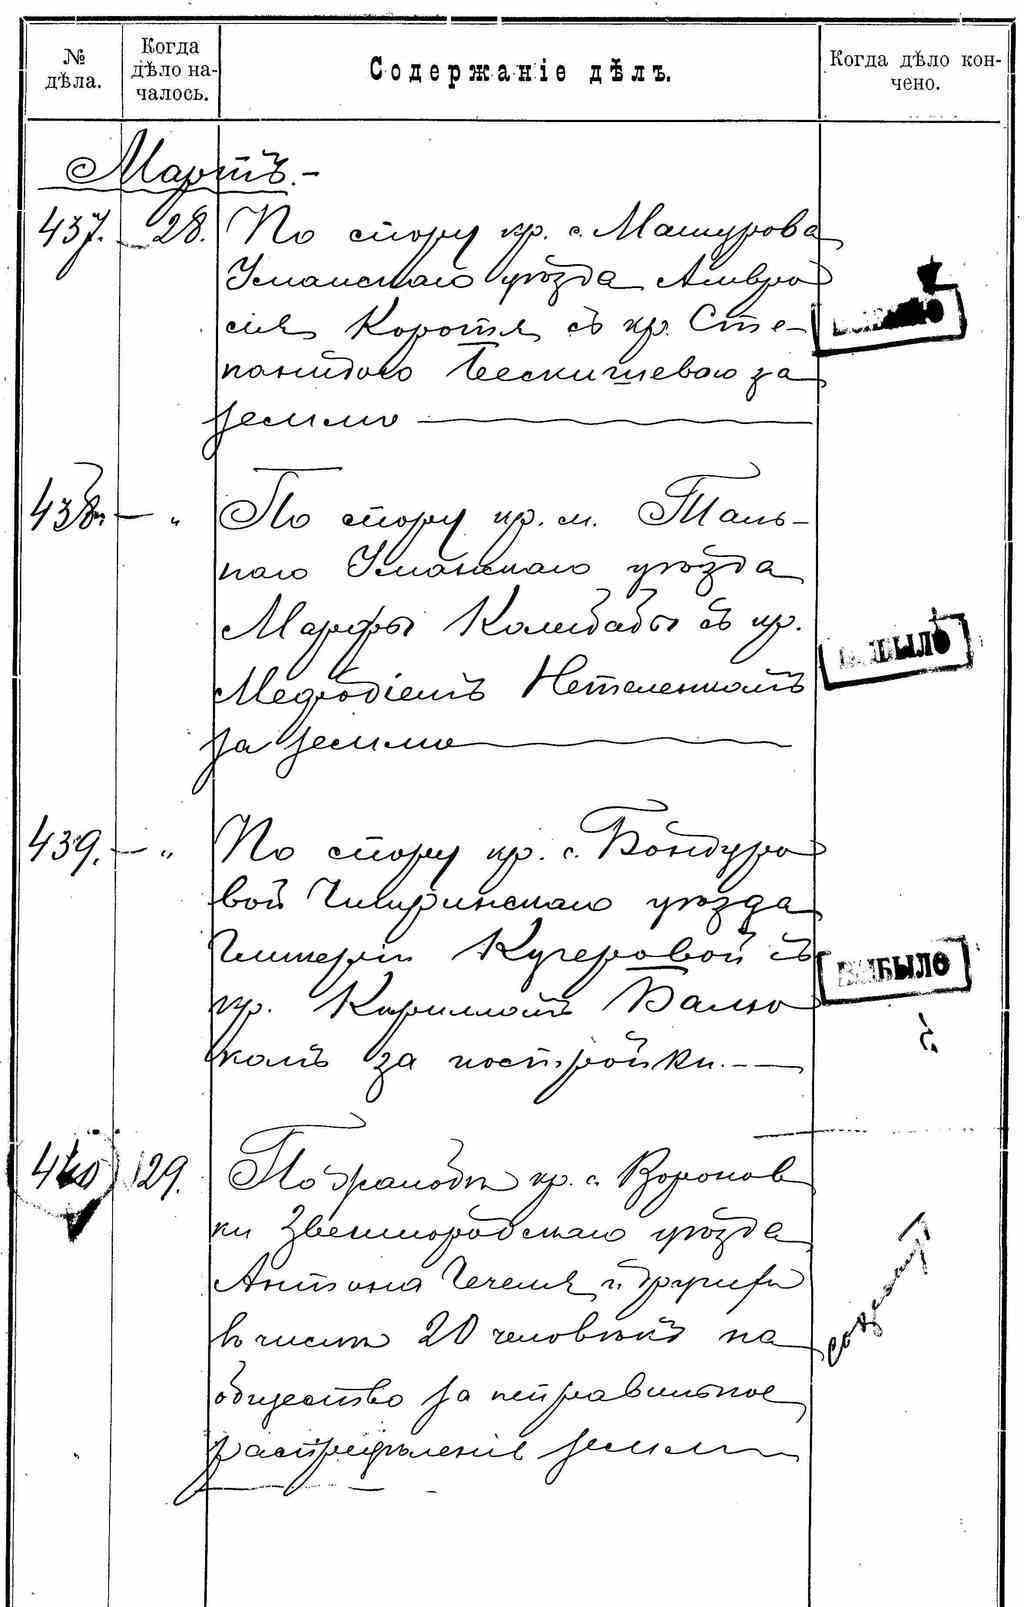 № дѣла.
Когда дѣло началось.
Содержаніе дѣлъ.
Когда дѣло кончено.
Мартъ.-
437. 28. По спору кр. с. Машурова
Уманскаго уѣзда Амвро
сія Коротя съ кр. Сте-
панидою Бескишевою за
землю
438. — „ По спору кр. м. Таль-
наго Уманскаго уѣзда
Марфы Колибабы съ кр.
Мефодіемъ Нетеленкомъ
за землю
ВЫБЫЛО
439. — „ По спору кр. с. Бондуро
вой Чигиринскаго уѣзда
Гликеріи Кучеровой съ
кр. Кирилломъ Балю
комъ за постройки.
ВЫБЫЛО
440 29. По жалобѣ кр. с. Воронов
ки Звенигородскаго уѣзда
Антона Чечеля и другихъ
въ числѣ 20 человѣкъ на
общество за неправильное
распредѣленіе земли